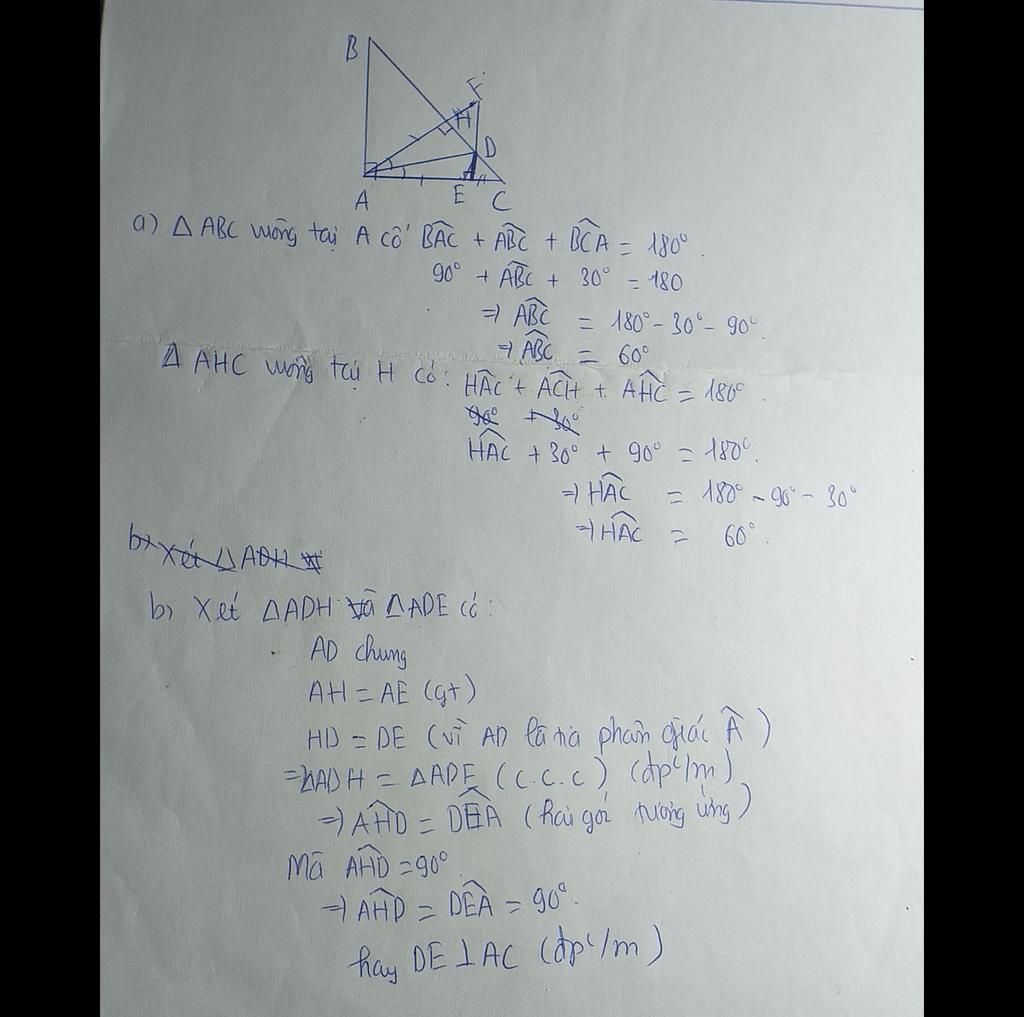 B
F
H
D
A E C
a) △ ABC vuông tại A có BAC + ABC + BCA = 180°.
90° + ABC + 30° = 180
=> ABC = 180° - 30° - 90°
=> ABC = 60°
△ AHC vuông tại H có: HAC + ACH + AHC = 180°.
90° + 30°
HAC + 30° + 90° = 180°.
=> HAC = 180° - 90° - 30°
=> HAC = 60°.
b, Xét △ADH
b, Xét △ADH và △ADE có:
AD chung
AH = AE (gt)
HD = DE (vì AD là tia phân giác Â)
=> △ADH = △ADE (c.c.c) (đpc/m)
=> AHD = DEA (hai góc tương ứng)
Mà AHD = 90°
=> AHD = DEA = 90°.
hay DE ⊥ AC (đpc/m)